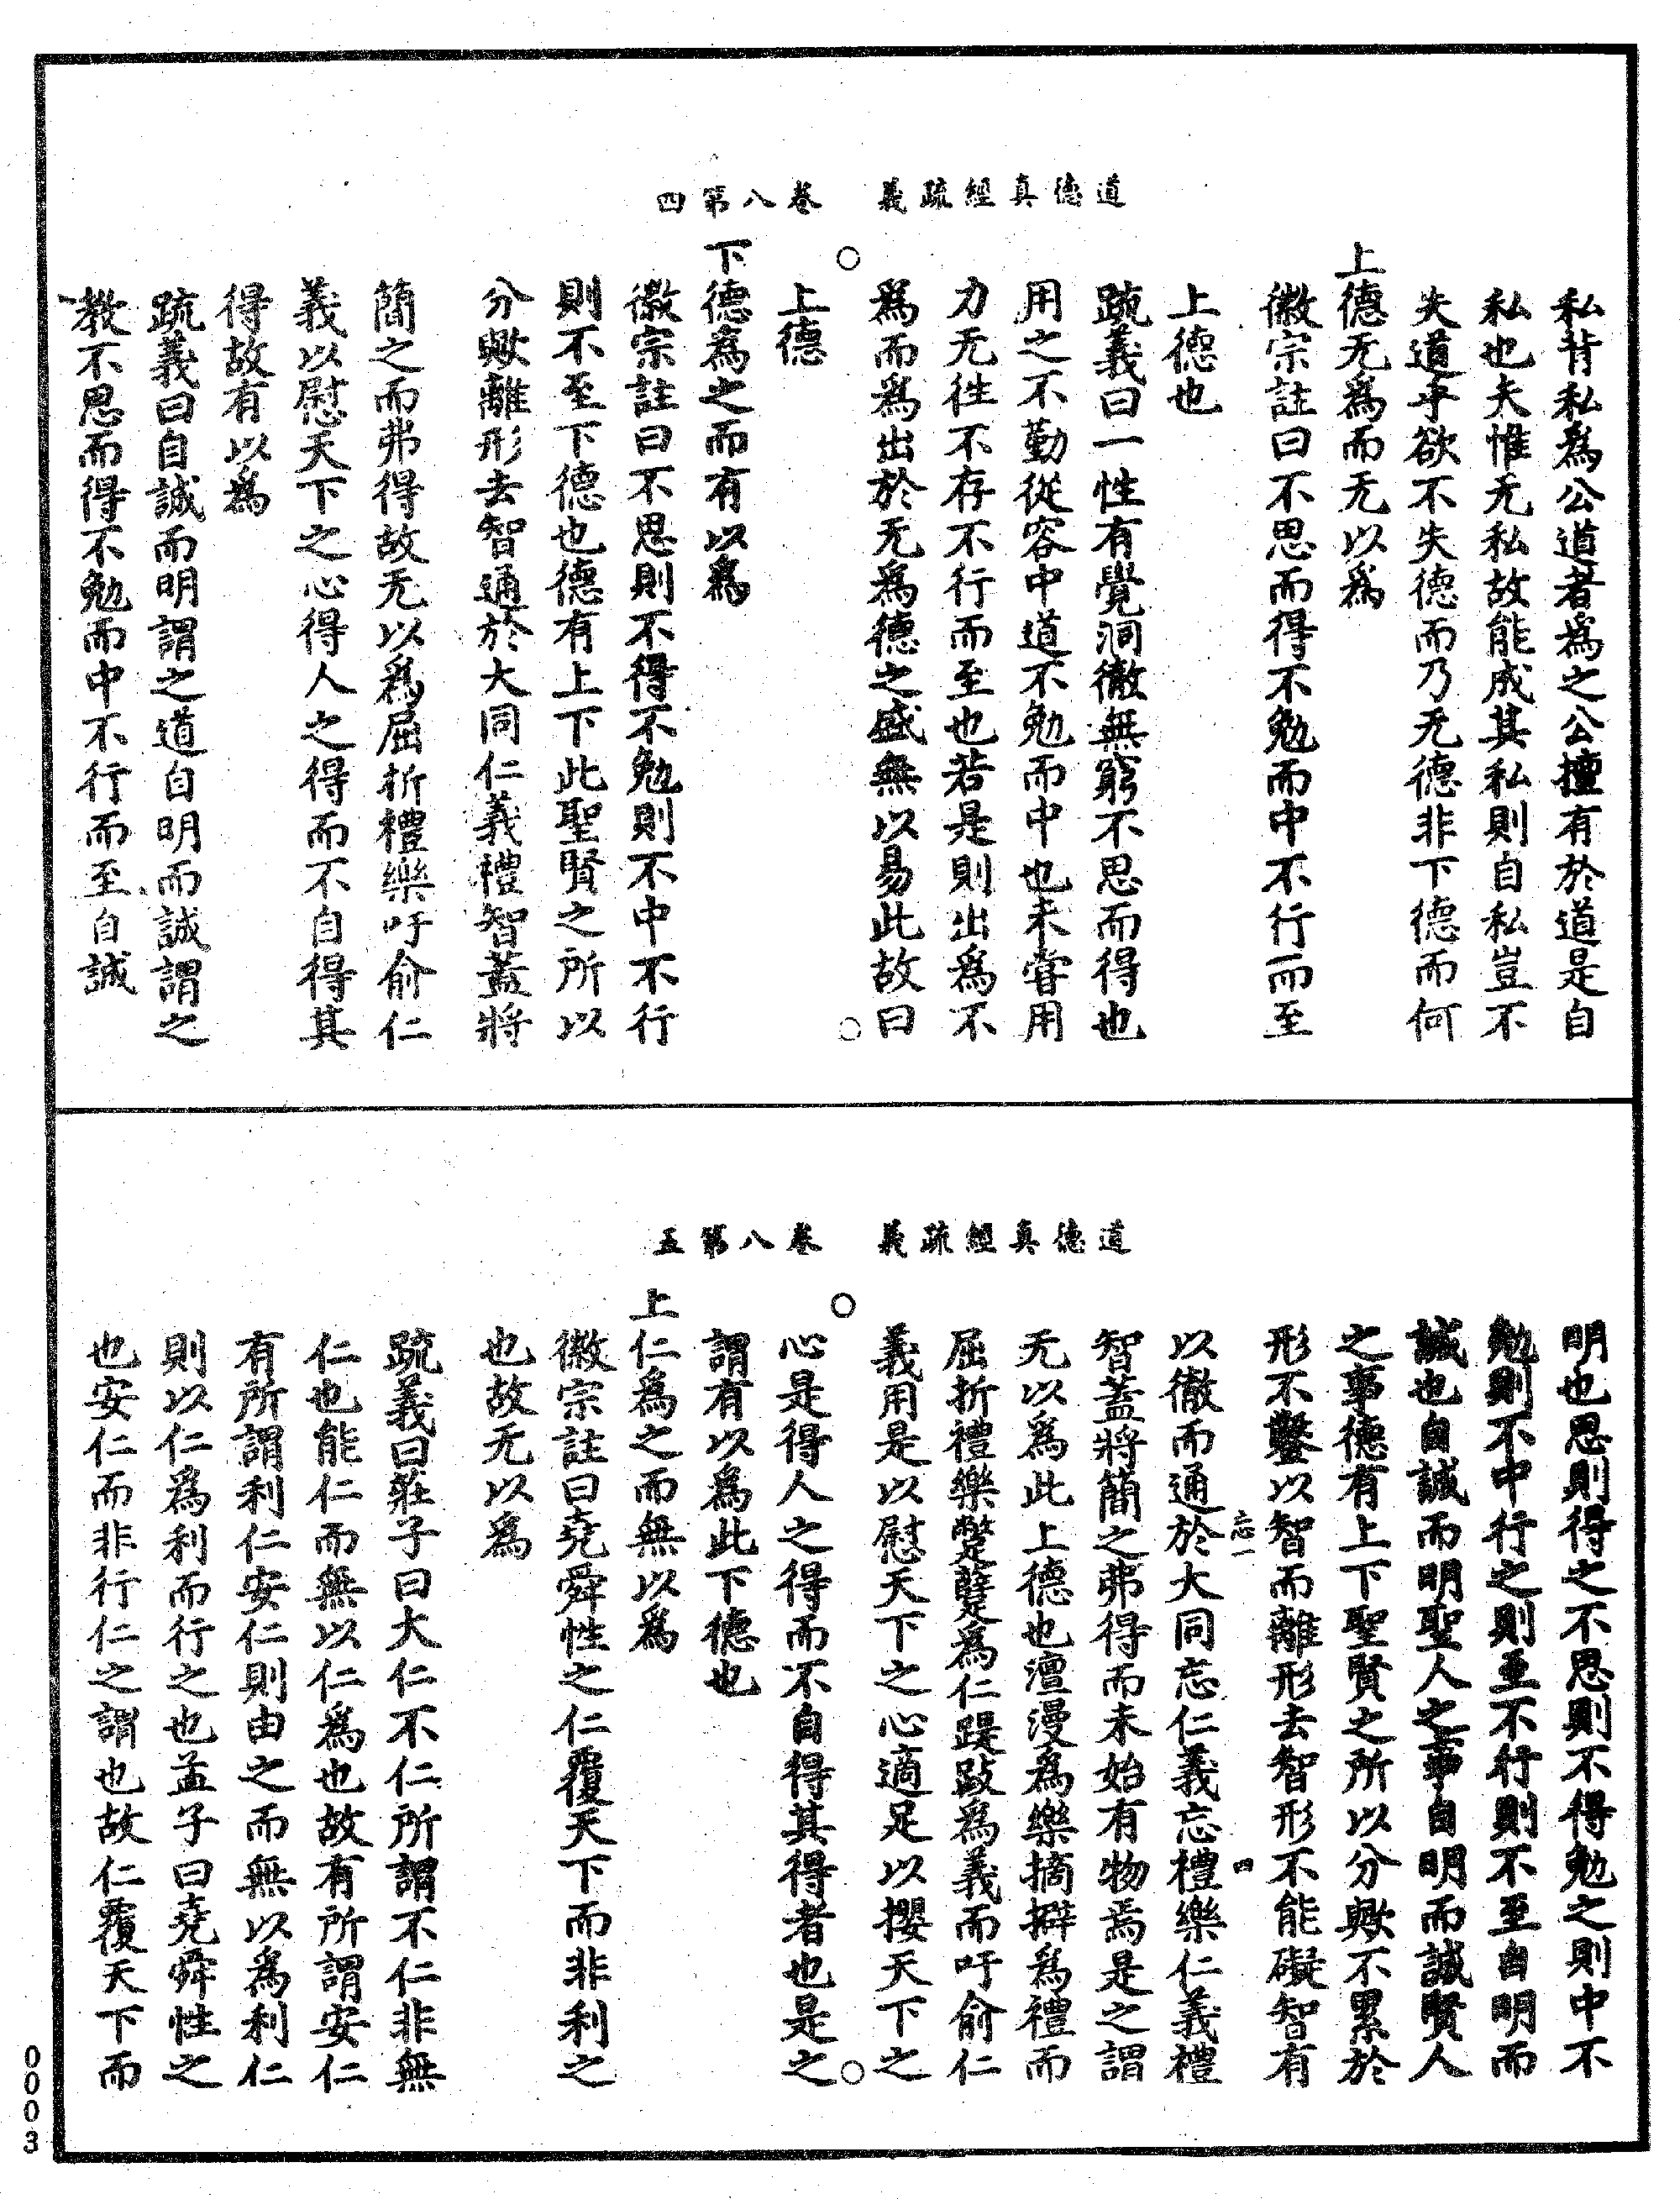 道德真經疏義　卷八第四
私背私爲公道者爲之公擅有於道是自
私也夫惟无私故能成其私則自私豈不
失道乎欲不失德而乃无德非下德而何
上德无爲而无以爲
徽宗註曰不思而得不勉而中不行而至
上德也
疏義曰一性有覺洞徹無窮不思而得也
用之不勤從容中道不勉而中也未甞用
力无往不存不行而至也若是則出爲不
爲而爲出於无爲德之盛無以易此故曰
上德
下德爲之而有以爲
徽宗註曰不思則不得不勉則不中不行
則不至下德也德有上下此聖賢之所以
分歟離形去智通於大同仁義禮智蓋將
簡之而弗得故无以爲屈折禮樂吁俞仁
義以慰天下之心得人之得而不自得其
得故有以爲
疏義曰自誠而明謂之道自明而誠謂之
教不思而得不勉而中不行而至自誠
道德真經疏義　卷八第五
明也思則得之不思則不得勉之則中不
勉則不中行之則至不行則不至自明而
誠也自誠而明聖人之事自明而誠賢人
之事德有上下聖賢之所以分歟不累於
形不鑿以智而離形去智形不能礙智有
忘一
四
以徹而通於大同忘仁義忘禮樂仁義禮
智蓋將簡之弗得而未始有物焉是之謂
无以爲此上德也澶漫爲樂摘擗爲禮而
屈折禮樂蹩躠爲仁踶跂爲義而吁俞仁
義用是以慰天下之心適足以攖天下之
心是得人之得而不自得其得者也是之
謂有以爲此下德也
上仁爲之而無以爲
徽宗註曰堯舜性之仁覆天下而非利之
也故无以爲
疏義曰莊子曰大仁不仁所謂不仁非無
仁也能仁而無以仁爲也故有所謂安仁
有所謂利仁安仁則由之而無以爲利仁
則以仁爲利而行之也孟子曰堯舜性之
也安仁而非行仁之謂也故仁覆天下而
0003